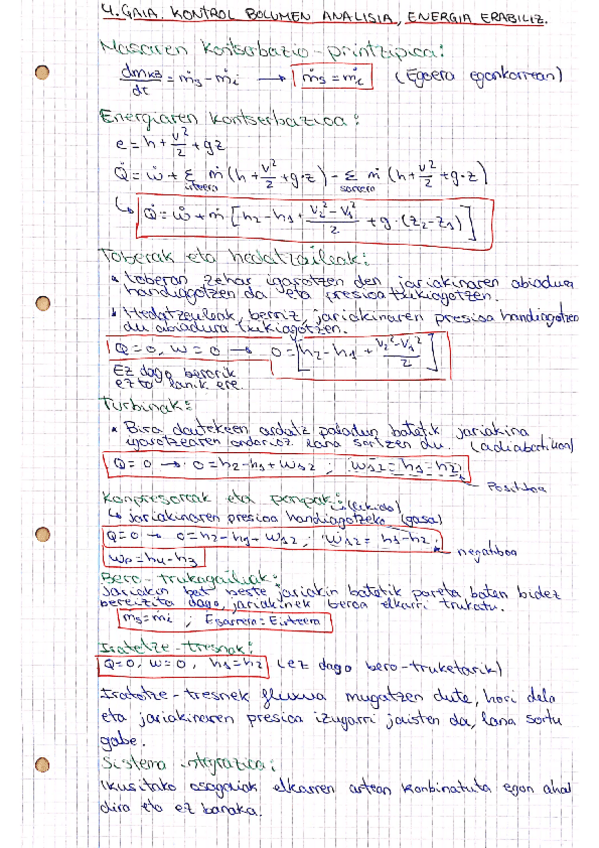 4. GAIA. KONTROL BOLUMEN ANALISIA, ENERGIA ERABILIZ.
Masaren kontserbazio-printzipioa:
dmKB/dt = ṁs - ṁi → ṁs = ṁi (Egoera egonkorrean)
Energiaren kontserbazioa:
e = h + v²/2 + gz
Q̇ = ẇ + Σ ṁ (h + v²/2 + g·z) - Σ ṁ (h + v²/2 + g·z)
irteera sarrera
↳ Q̇ = ẇ + ṁ [h2 - h1 + (v2² - v1²)/2 + g·(z2 - z1)]
Toberak eta hedatzaileak:
• Toberan zehar igarotzen den jariakinaren abiadura
handiagotzen da eta presioa txikiagotzen.
• Hedatzaileak, berriz, jariakinaren presioa handiagotzen
du abiadura txikiagotzen.
Q = 0, w = 0 → 0 = [h2 - h1 + (v2² - v1²)/2]
Ez dago berorik
ezta lanik ere.
Turbinak:
• Bira daitekeen ardatz paladun batetik jariakina
igarotzearen ondorioz lana sortzen du. (adiabatikoa)
Q = 0 → 0 = h2 - h1 + w12 ; w12 = h1 - h2
Positiboa
Konpresoreak eta ponpak: (likido)
↳ jariakinaren presioa handiagotzeko (gasa)
Q = 0 → 0 = h2 - h1 - w12 ; w12 = h1 - h2
negatiboa
wp = h4 - h3
Bero-trukagailuak:
Jariakin bat beste jariakin batetik pareta baten bidez
bereizita dago, jariakinek beroa elkarri trukatu.
ṁs = ṁi , Esarrera = Eirteera
Itotze-tresnak:
Q = 0, w = 0, h1 = h2 (ez dago bero-truketarik)
Itotze-tresnek fluxua mugatzen dute, hori dela
eta jariakinaren presioa izugarri jaisten da, lana sortu
gabe.
Sistema integrazioa:
Ikusitako osagaiak elkarren artean konbinatuta egon ahal
dira eta ez banaka.